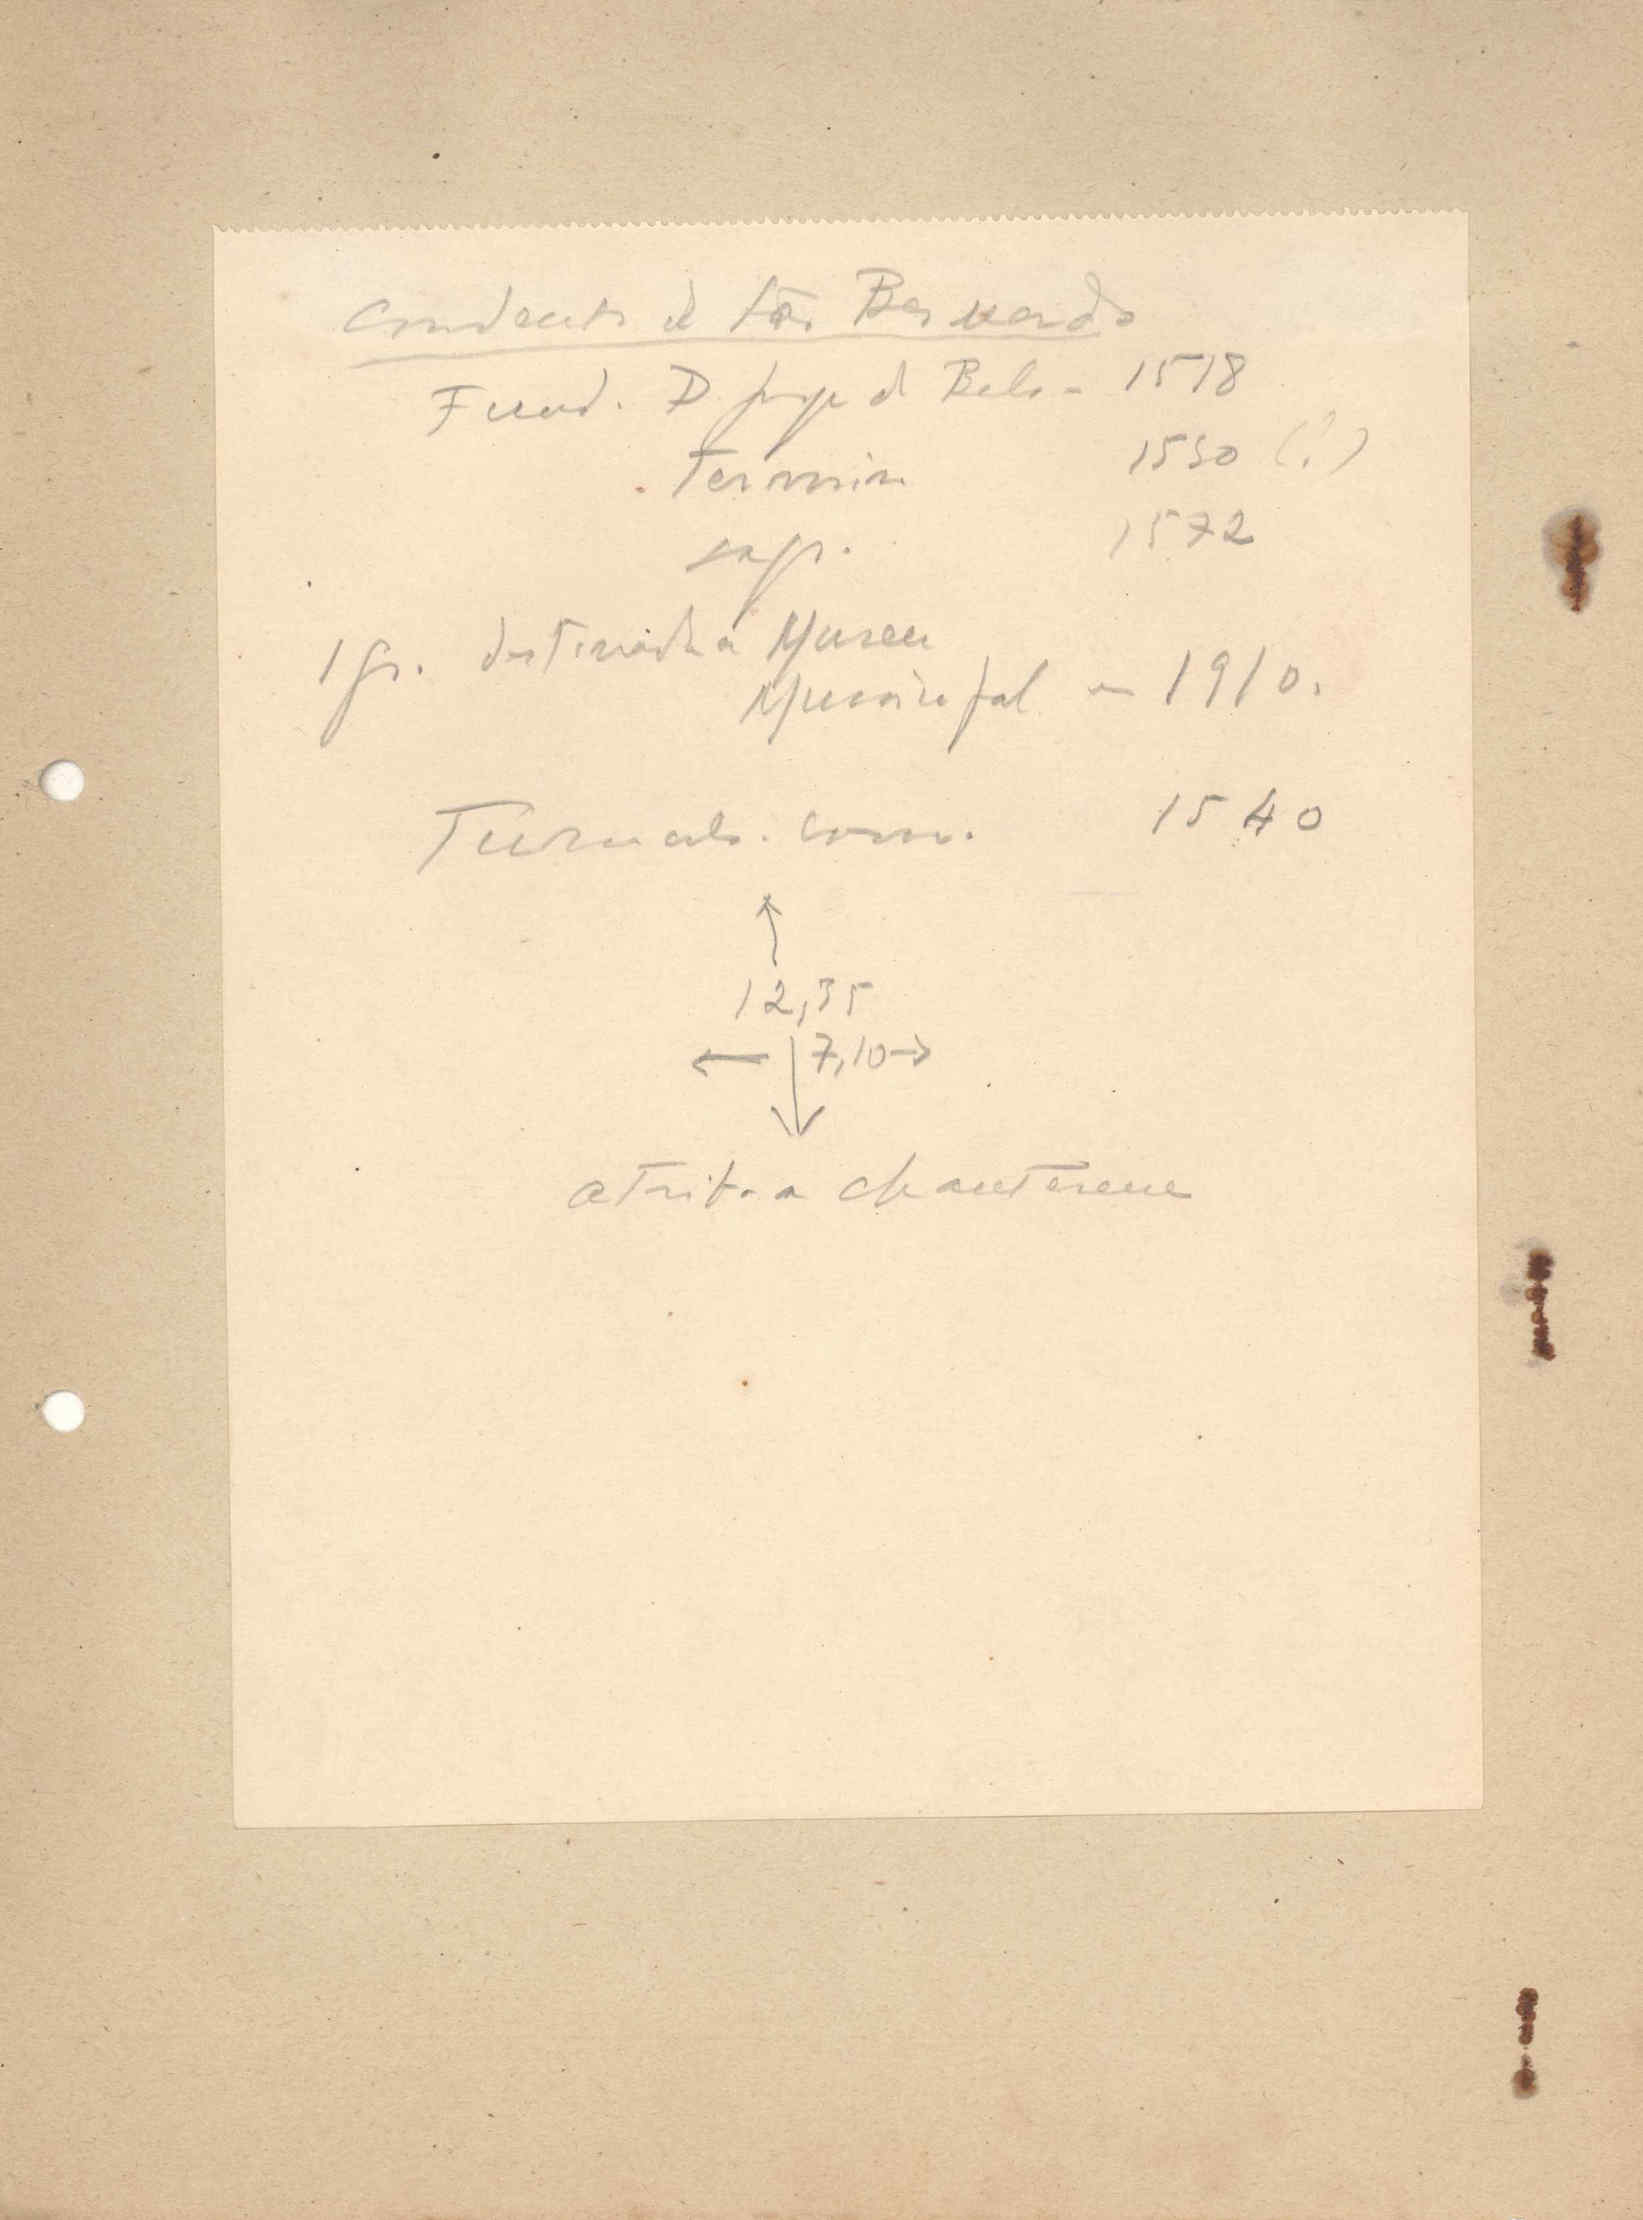 Convento de São Bernardo
Fund. D. Jorge de Melo - 1518
Termin. 1550 (?)
sagr. 1572
Igr. destinada a Museu
Municipal em 1910.
Tumulo. com. 1540
12,35
7,10
atrib. a Chanterene